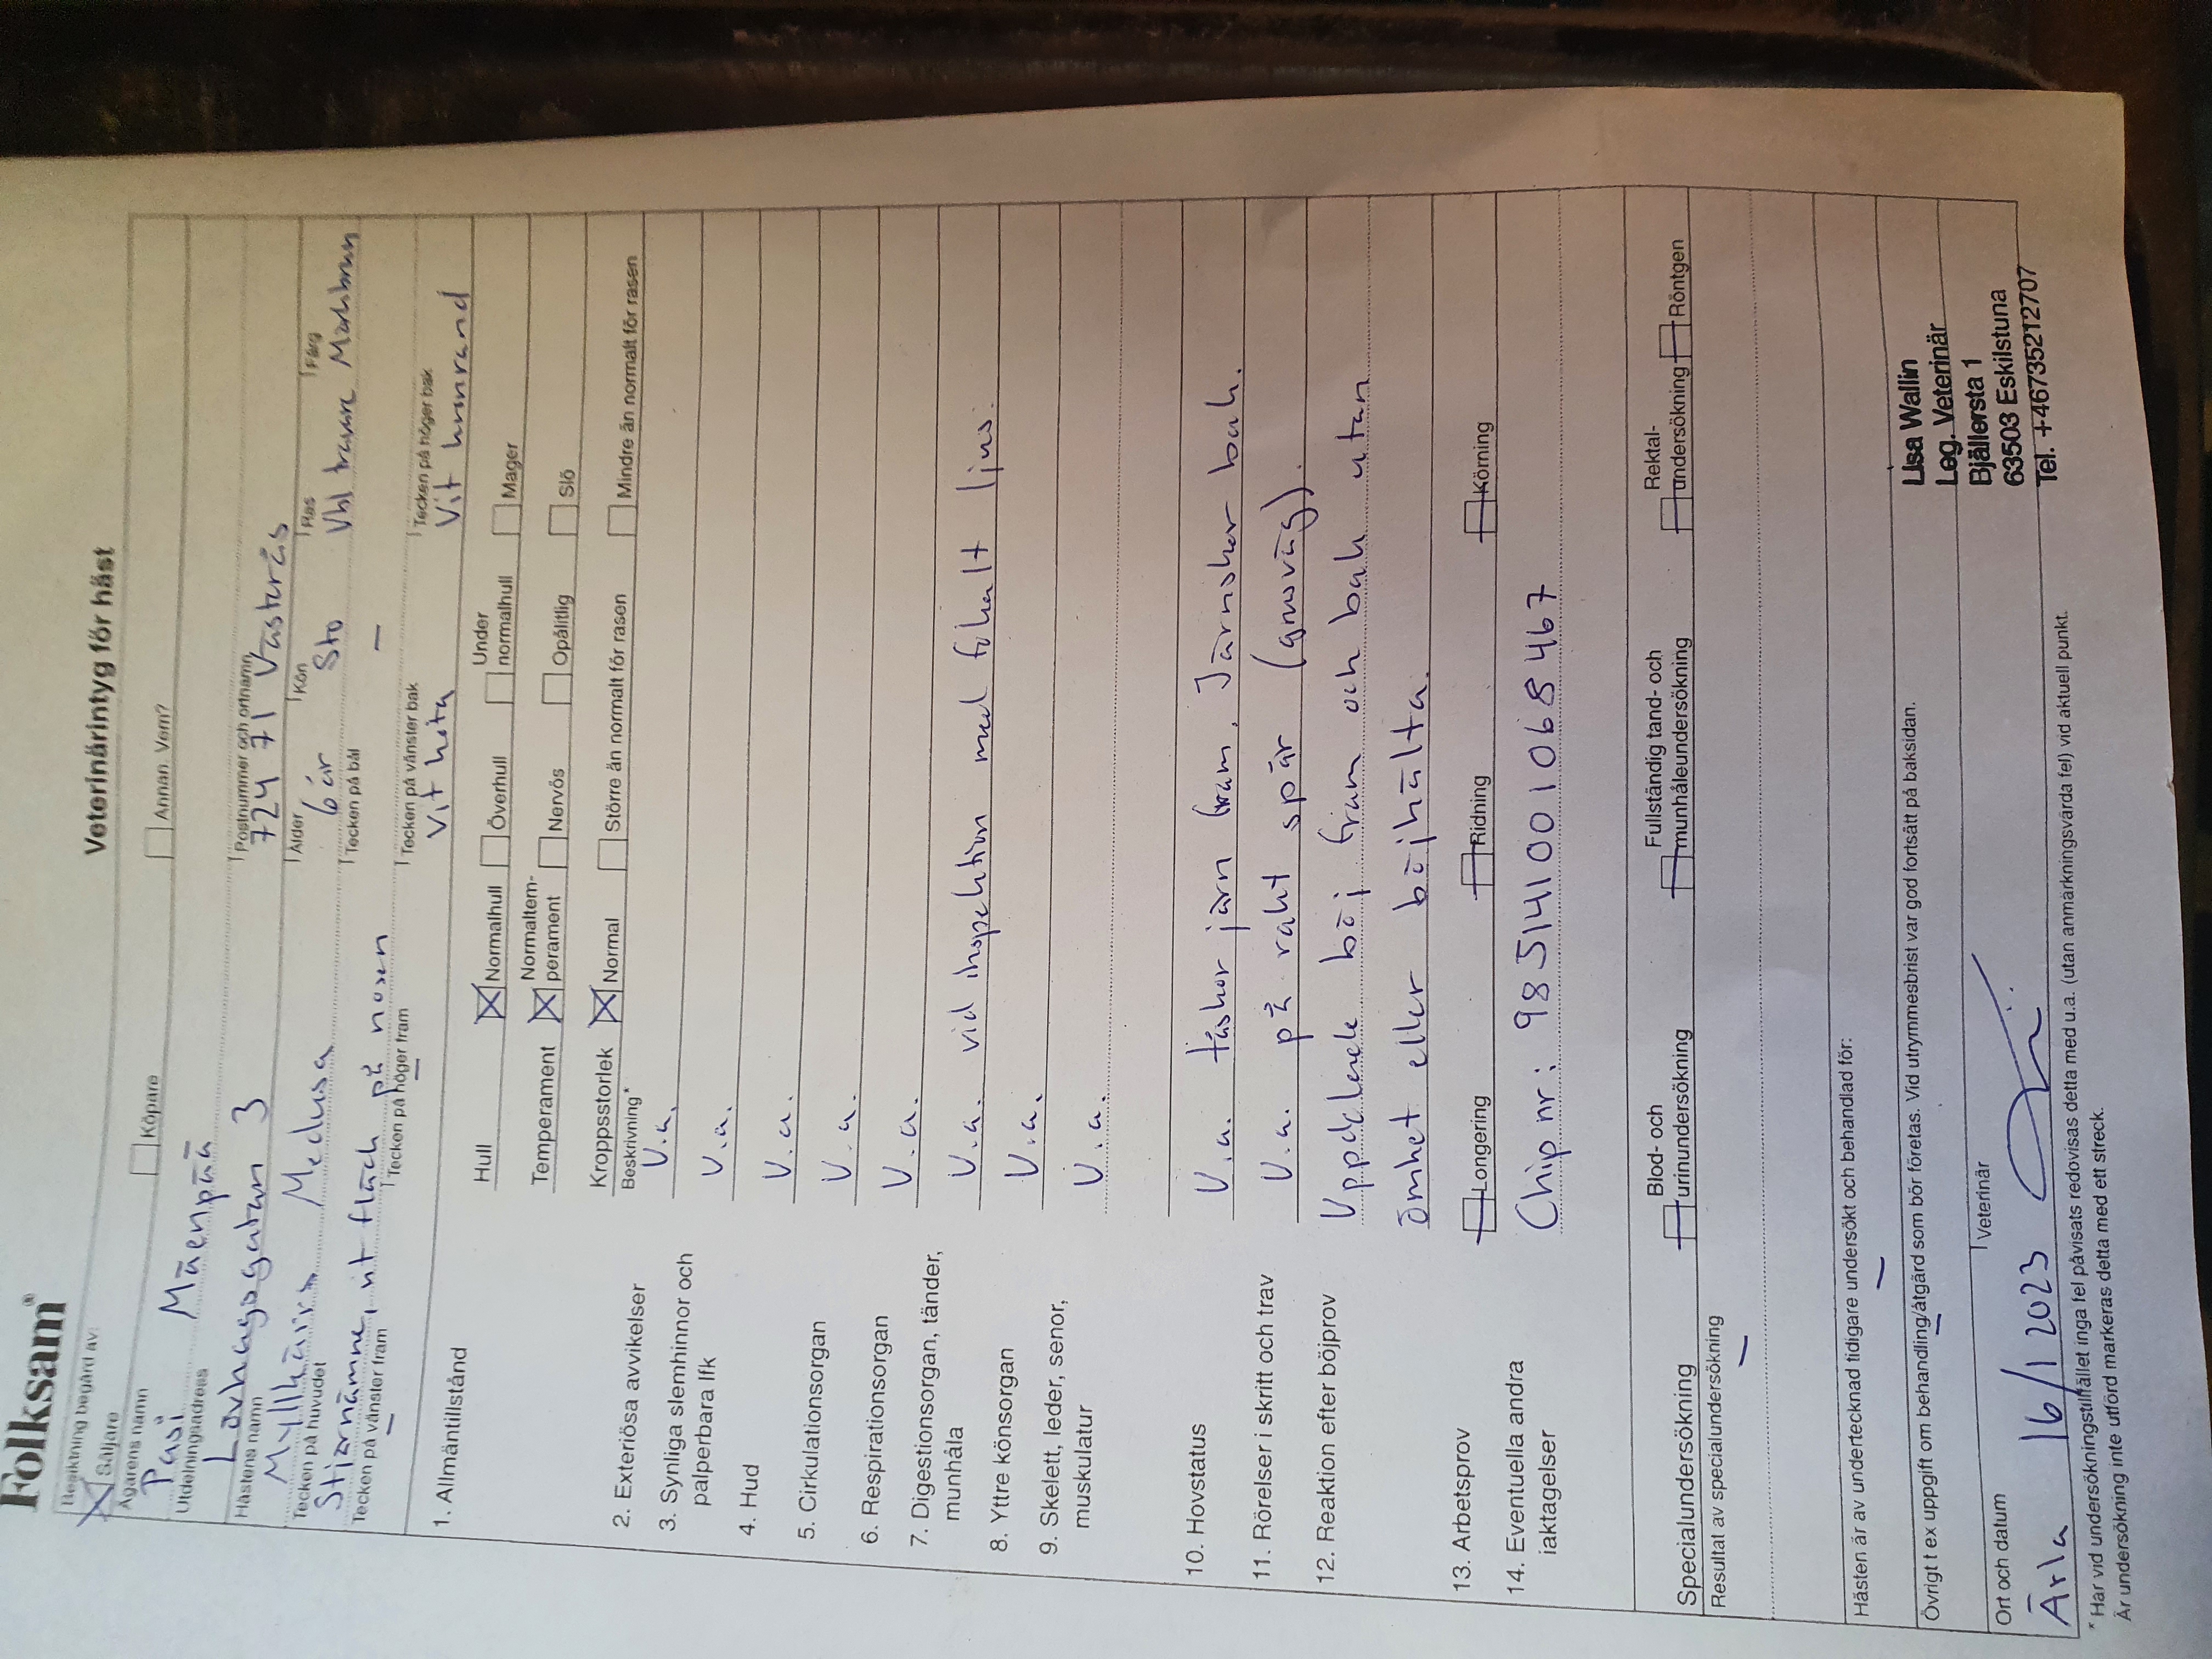 Folksam®
Veterinärintyg för häst
Besiktning begärd av:
Säljare Köpare Annan. Vem?
Ägarens namn
Pasi Mäenpää
Utdelningsadress Postnummer och ortnamn
Lövhagsgatan 3 724 71 Västerås
Hästens namn Ålder Kön Ras Färg
Myllkärrs Medusa 6 år Sto Vbl travare Mörkbrun
Tecken på huvudet Tecken på bål
Stjärnämne, vit fläck på nosen –
Tecken på vänster fram Tecken på höger fram Tecken på vänster bak Tecken på höger bak
– – Vit hota Vit kronrand
1. Allmäntillstånd
Hull Normalhull Överhull Under normalhull Mager
Temperament Normaltem-perament Nervös Opålitlig Slö
Kroppsstorlek Normal Större än normalt för rasen Mindre än normalt för rasen
Beskrivning*
2. Exteriösa avvikelser U.a.
3. Synliga slemhinnor och
palperbara lfk U.a.
4. Hud U.a.
5. Cirkulationsorgan U.a.
6. Respirationsorgan U.a.
7. Digestionsorgan, tänder,
munhåla U.a. vid inspektion med fokalt ljus.
8. Yttre könsorgan U.a.
9. Skelett, leder, senor,
muskulatur U.a.
10. Hovstatus U.a. Täskor järn fram. Järnskor bak.
11. Rörelser i skritt och trav U.a. på rakt spår (grusväg).
12. Reaktion efter böjprov Uppdelade böj fram och bak utan
ömhet eller böjhälta.
13. Arbetsprov Longering Ridning Körning
14. Eventuella andra
iaktagelser Chip nr: 985141001068467
Specialundersökning Blod- och urinundersökning Fullständig tand- och munhåleundersökning Rektal-undersökning Röntgen
Resultat av specialundersökning
–
Hästen är av undertecknad tidigare undersökt och behandlad för:
–
Övrigt t ex uppgift om behandling/åtgärd som bör företas. Vid utrymmesbrist var god fortsätt på baksidan.
–
Lisa Wallin
Leg. Veterinär
Bjällersta 1
63503 Eskilstuna
Tel. +46735212707
Ort och datum Veterinär
Ärla 16/1 2023
* Har vid undersökningstillfället inga fel påvisats redovisas detta med u.a. (utan anmärkningsvärda fel) vid aktuell punkt.
Är undersökning inte utförd markeras detta med ett streck.